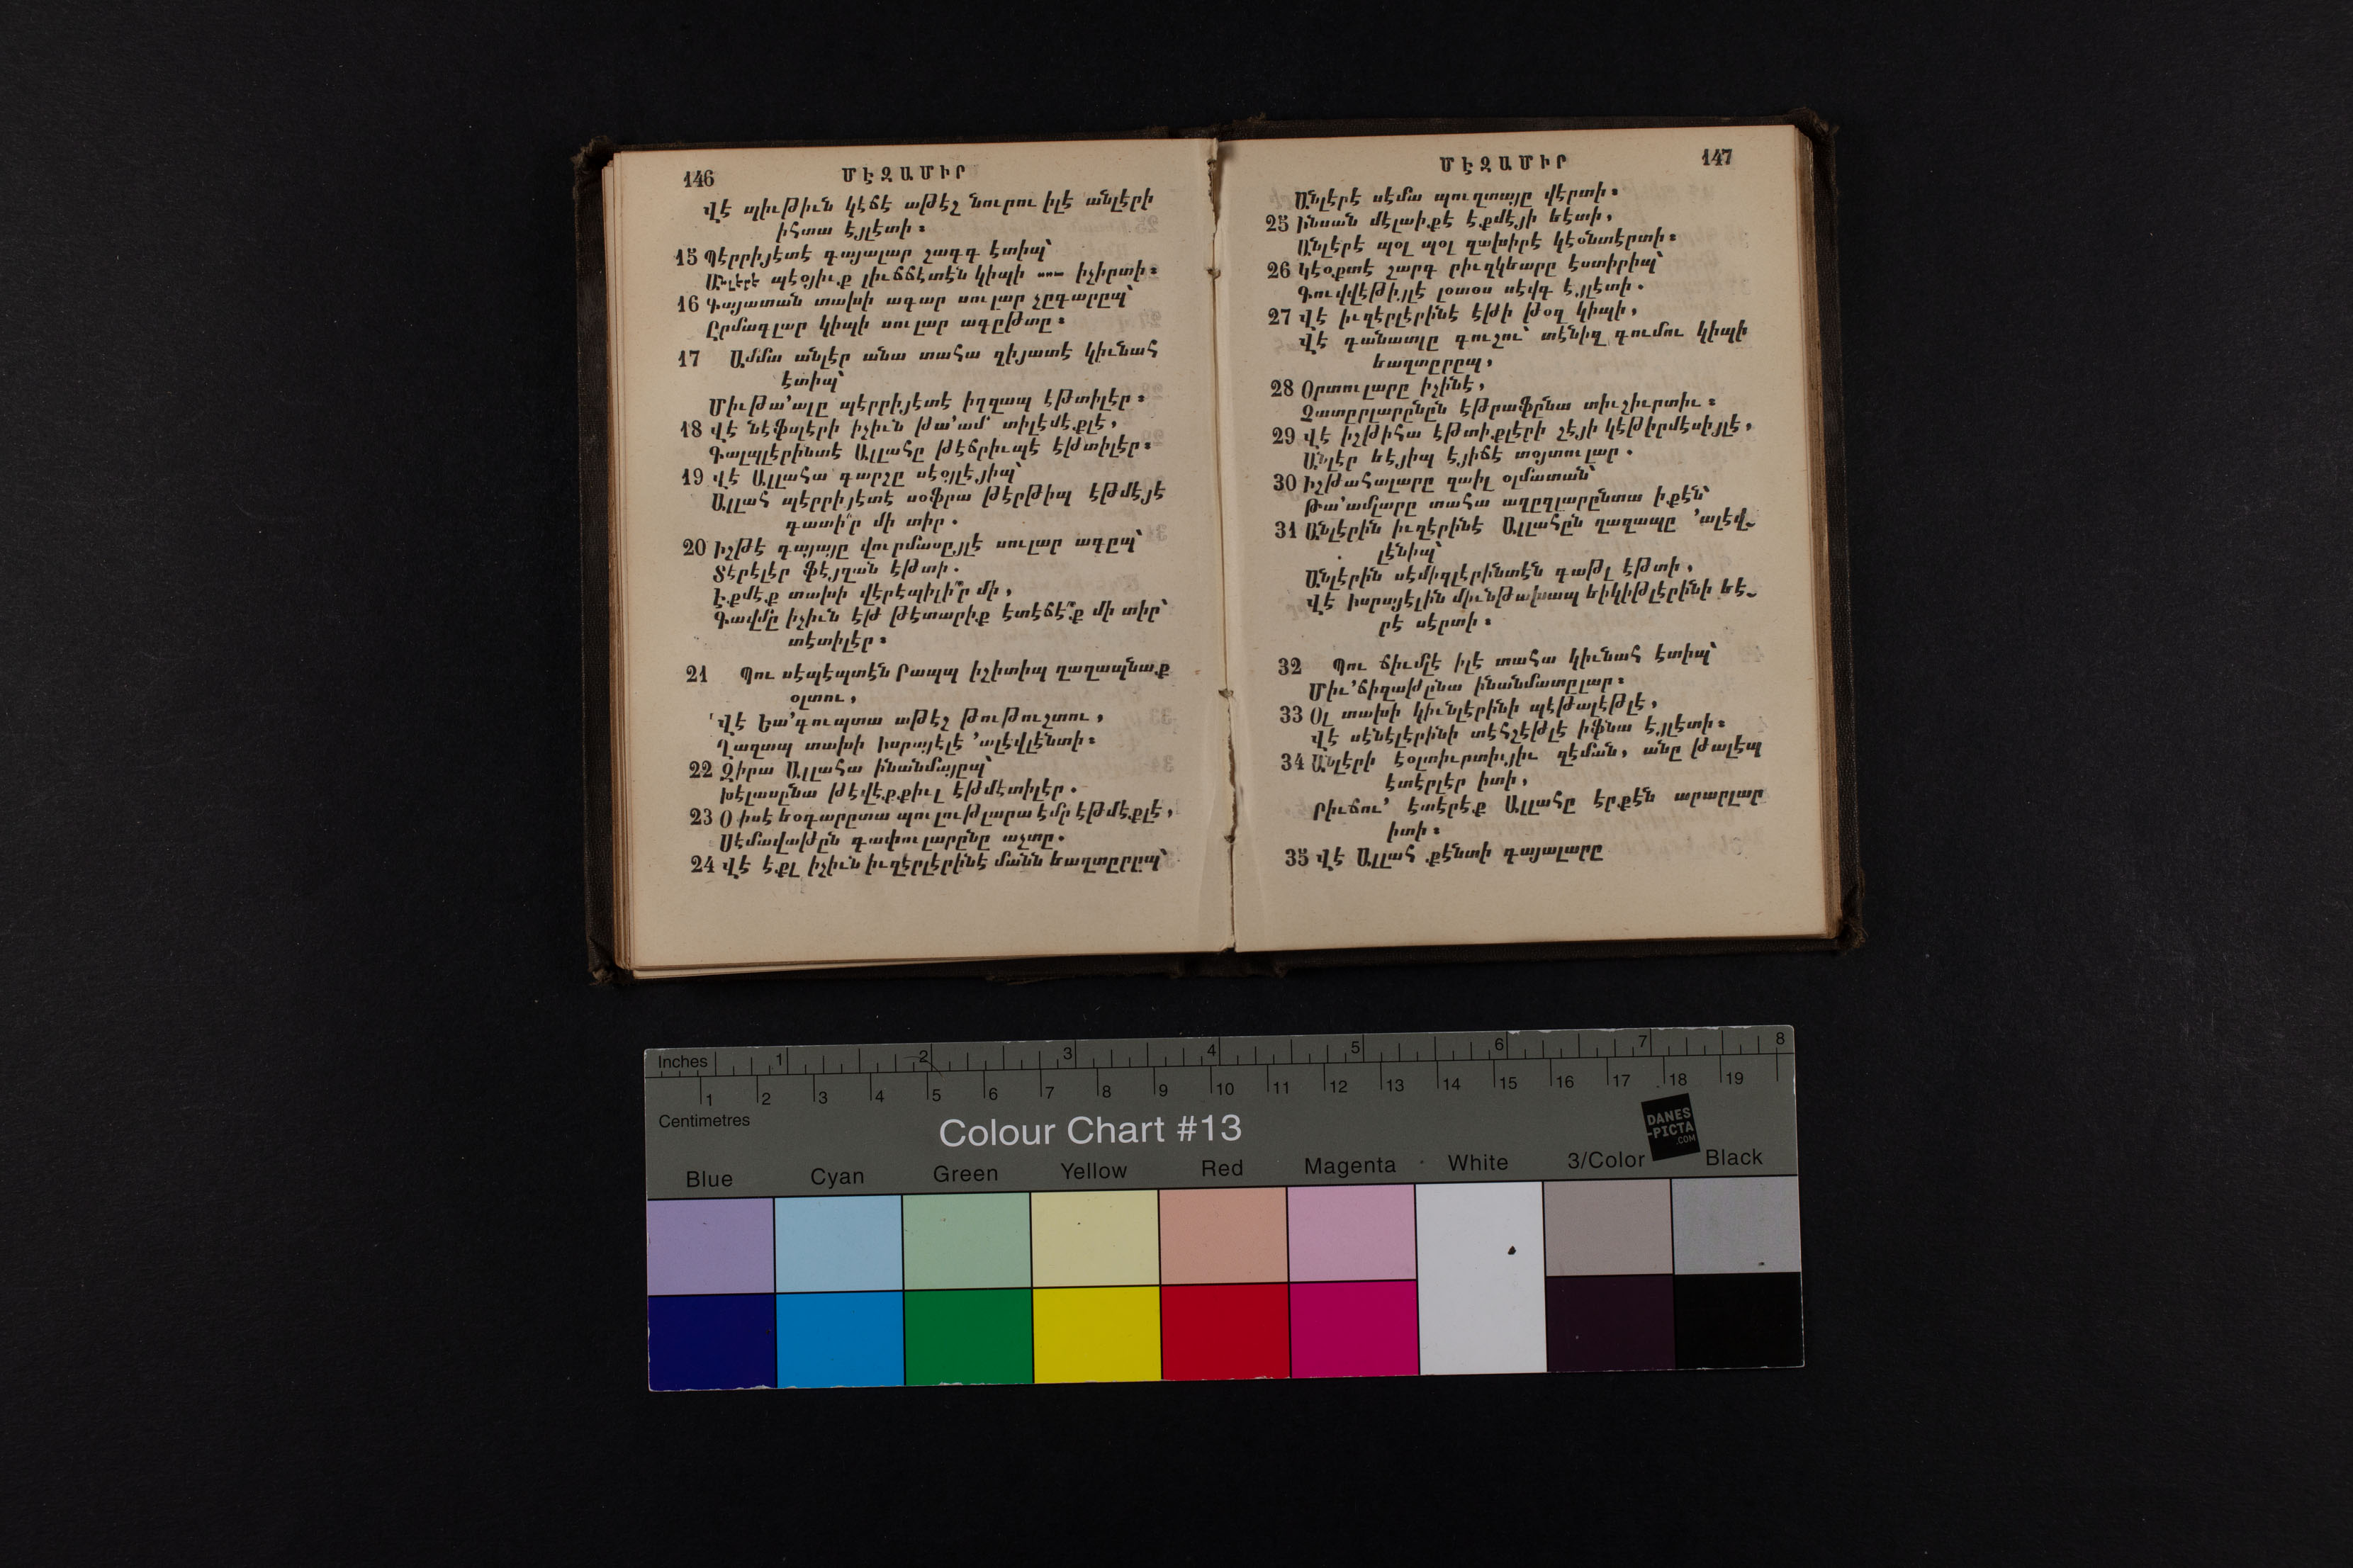 146
ՄԷԶԱՄԻՐ
Վէ պիւթիւն կէճէ աթէշ նուրու իլէ անլէրի
իհտա էյլէտի։
15 Պէրրիյէտէ գայալար շագգ էտիպ՝
Անլէրէ պէօյիւք լիւճճէտէն կիպի իչիրտի։
16 Գայատան տախի ագար սուլար չըգարըպ՝
Ըրմագլար կիպի սուլար ագըթտը։
17 Ամմա անլէր անա տահա զիյատէ կիւնահ
էտիպ՝
Միւթա՚ալը պէրրիյէտէ իղզապ էթտիլէր։
18 Վէ նէֆսլէրի իչիւն թա՚ամ տիլէմէքլէ,
Գալպլէրինտէ Ալլահը թէճրիւպէ էթտիլէր։
19 Վէ Ալլահա գարշը սէօյլէյիպ՝
Ալլահ պէրրիյէտէ սօֆրա թէրթիպ էթմէյէ
գատի՞ր մի տիր.
20 Իշթէ գայայը վուրմասըյլէ սուլար ագըպ՝
Տէրէլէր ֆէյզան էթտի.
Էքմէք տախի վէրէպիլի՞ր մի,
Գավմը իչիւն էթ թէտարիք էտէճէ՞ք մի տիր՝
տէտիլէր։
21 Պու սէպէպտէն Րապպ իշիտիպ ղազապնաք
օլտու,
Վէ Եա՚գուպտա աթէշ թութուշտու,
Ղազապ տախի Իսրայէլէ ՚ալէվլէնտի։
22 Զիրա Ալլահա ինանմայըպ՝
Խէլասընա թէվէքքիւլ էթմէտիլէր.
23 Օ իսէ եօգարըտա պուլութլարա էմր էթմէքլէ,
Սէմավաթըն գափուլարընը աչտը.
24 Վէ էքլ իչիւն իւզէրլէրինէ մանն եաղտըրըպ՝
ՄԷԶԱՄԻՐ
147
Անլէրէ սէմա պուղտայը վէրտի։
25 Ինսան մէլաիքէ էքմէյի եէտի,
Անլէրէ պօլ պօլ զախիրէ կէօնտէրտի։
26 Կէօքտէ շարգ րիւզկեարը էստիրիպ՝
Գուվվէթիյլէ լօտօս սէվգ էյլէտի.
27 Վէ իւզէրլէրինէ էթի թօզ կիպի,
Վէ գանատլը գուշու՝ տէնիզ գումու կիպի
եաղտըրըպ,
28 Օրտուլարը իչինէ,
Չատըրլարընըն էթրաֆընա տիւշիւրտիւ։
29 Վէ իշթիհա էթտիքլէրի շէյի կէթիրմէսիյլէ,
Անլէր եէյիպ էյիճէ տօյտուլար.
30 Իշթահալարը զաիլ օլմատան՝
Թա՚ամլարը տահա աղըզլարընտա իքէն՝
31 Անլէրին իւզէրինէ Ալլահըն ղազապը ՚ալէվ-
լէնիպ՝
Անլէրին սէմիզլէրինտէն գաթլ էթտի,
Վէ Իսրայէլին միւնթախապ եիկիթլէրինի եէ-
րէ սէրտի։
32 Պու ճիւմլէ իլէ տահա կիւնահ էտիպ՝
Միւ՚ճիզաթընա ինանմատըլար։
33 Օլ տախի կիւնլէրինի պէթալէթլէ,
Վէ սէնէլէրինի տէհշէթլէ իֆնա էյլէտի։
34 Անլէրի էօլտիւրտիւյիւ զէման, անը թալէպ
էտէրլէր իտի,
Րիւճու՚ էտէրէք Ալլահը էրքէն արարլար
իտի։
35 Վէ Ալլահ քէնտի գայալարը
Inches 1 2 3 4 5 6 7 8
1 2 3 4 5 6 7 8 9 10 11 12 13 14 15 16 17 18 19
Centimetres
Colour Chart #13
DANES
-PICTA
.COM
Blue Cyan Green Yellow Red Magenta White 3/Color Black